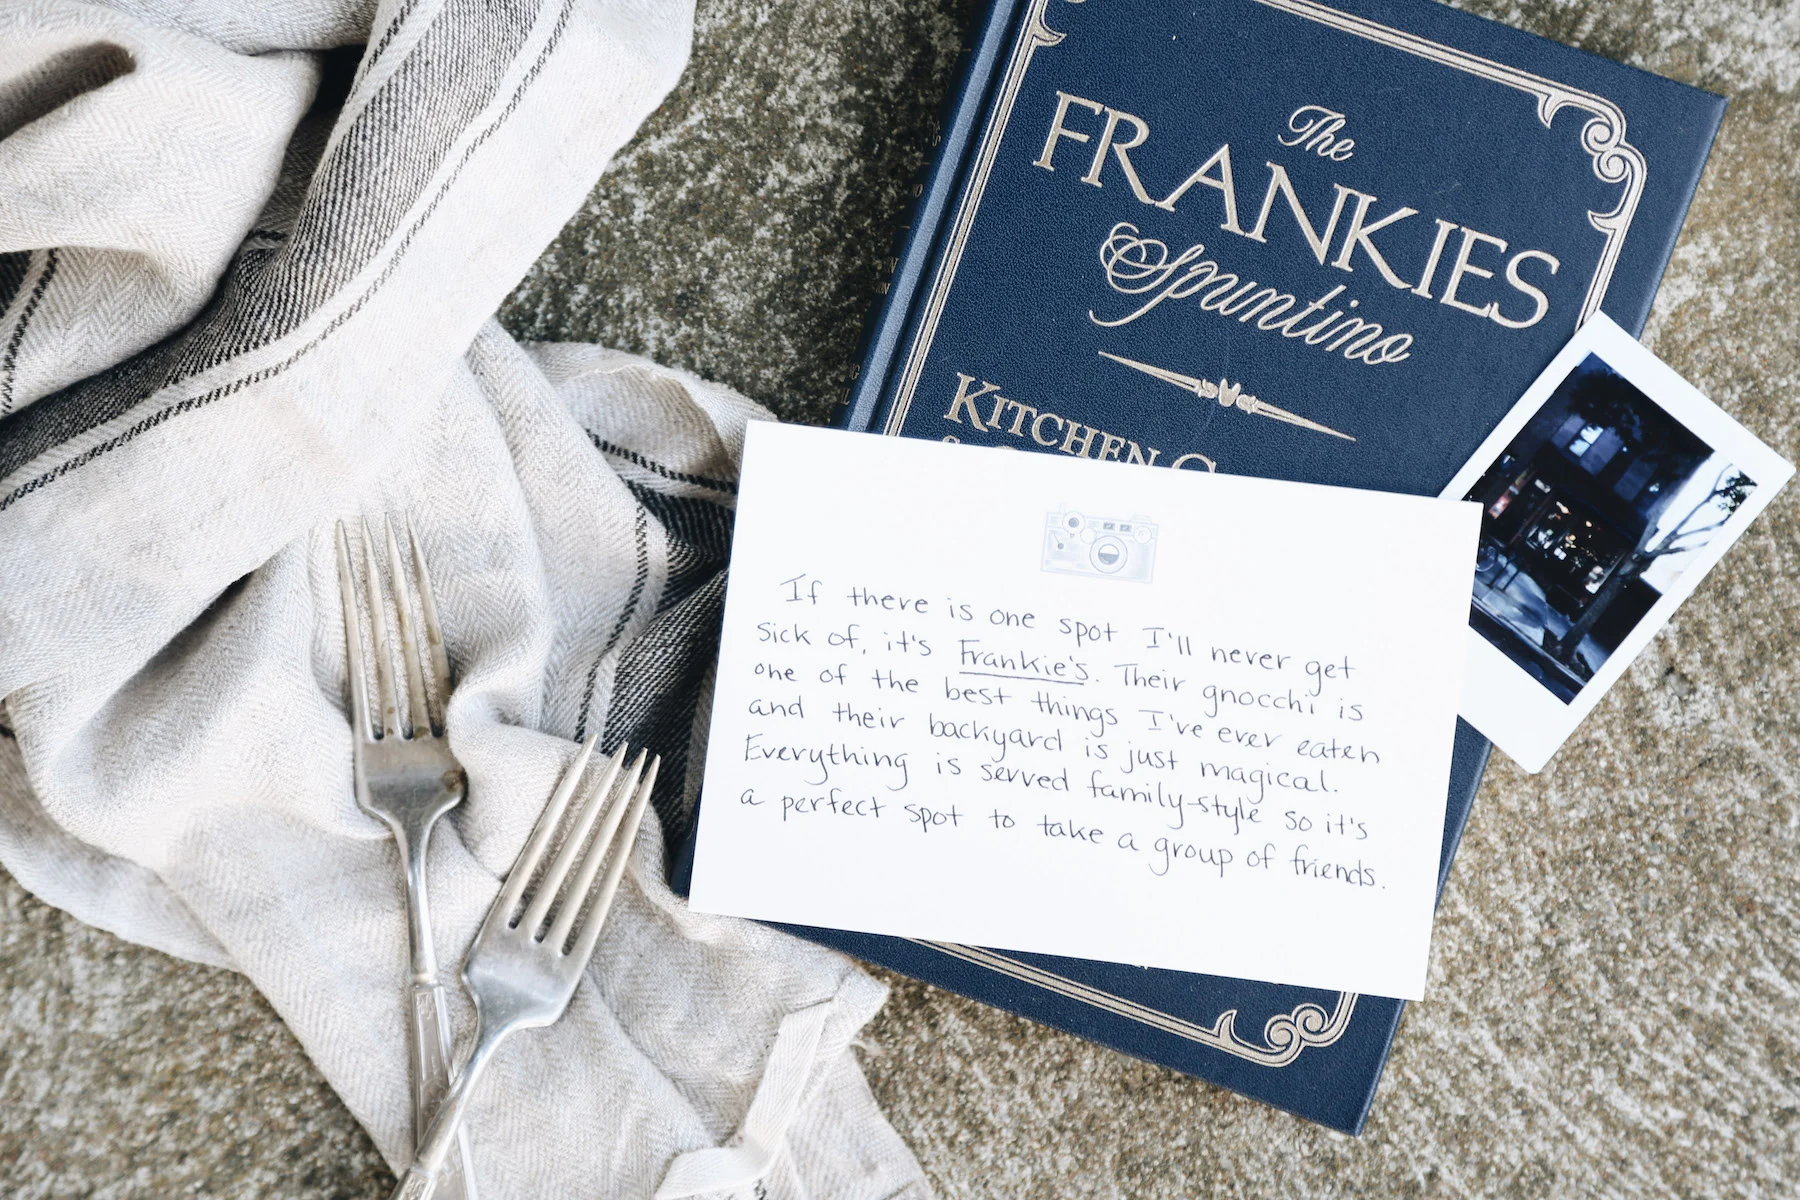 The
FRANKIES
Spuntino
KITCHEN
If there is one spot I'll never get
sick of, it's Frankie's. Their gnocchi is
one of the best things I've ever eaten
and their backyard is just magical.
Everything is served family-style so it's
a perfect spot to take a group of friends.